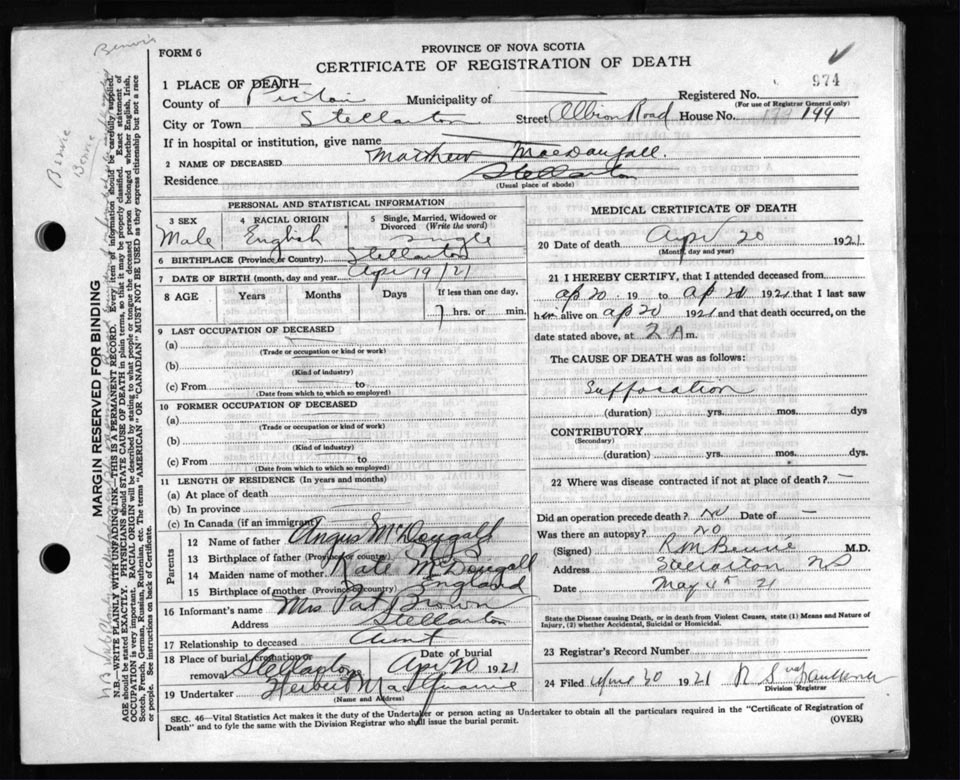 FORM 6
PROVINCE OF NOVA SCOTIA
CERTIFICATE OF REGISTRATION OF DEATH
974
1 PLACE OF DEATH—
County of Pictou Municipality of Registered No.
(For use of Registrar General only)
City or Town Stellarton Street Albion Road House No. 199
If in hospital or institution, give name
2 NAME OF DECEASED Mathew MacDougall.
Residence Stellarton
(Usual place of abode)
PERSONAL AND STATISTICAL INFORMATION
3 SEX 4 RACIAL ORIGIN 5 Single, Married, Widowed or Divorced (Write the word)
Male English Single
6 BIRTHPLACE (Province or Country) Stellarton
7 DATE OF BIRTH (month, day and year) Apr 19/21
8 AGE Years Months Days If less than one day,
7 hrs. or min.
9 LAST OCCUPATION OF DECEASED
(a)
(Trade or occupation or kind or work)
(b)
(Kind of industry)
(c) From to
(Date from which to which so employed)
10 FORMER OCCUPATION OF DECEASED
(a)
(Trade or occupation or kind or work)
(b)
(Kind of industry)
(c) From to
(Date from which to which so employed)
11 LENGTH OF RESIDENCE (In years and months)
(a) At place of death
(b) In province
(c) In Canada (if an immigrant)
Parents
12 Name of father Angus McDougall
13 Birthplace of father (Province or country) N S
14 Maiden name of mother Kate McDougall
15 Birthplace of mother (Province or country) England
16 Informant's name Mrs Pat Brown
Address Stellarton
17 Relationship to deceased Aunt
18 Place of burial, cremation or removal Stellarton Date of burial Apr 20 1921
19 Undertaker Herbert MacQuarrie
(Name and Address)
MEDICAL CERTIFICATE OF DEATH
20 Date of death Apr 20 1921
(Month, day and year)
21 I HEREBY CERTIFY, that I attended deceased from
Ap 20 19 to Ap 20 1921 that I last saw
him alive on Ap 20 1921 and that death occurred, on the
date stated above, at 2 A m.
The CAUSE OF DEATH was as follows:
Suffocation
(duration) yrs. mos. dys
CONTRIBUTORY
(Secondary)
(duration) yrs. mos. dys.
22 Where was disease contracted if not at place of death? —
Did an operation precede death? No Date of —
Was there an autopsy? No
(Signed) R M Benvie M.D.
Address Stellarton NS
Date May 4th 21
State the Disease causing Death, or in death from Violent Causes, state (1) Means and Nature of Injury, (2) whether Accidental, Suicidal or Homicidal.
23 Registrar's Record Number
24 Filed April 20 1921
Division Registrar
SEC. 46—Vital Statistics Act makes it the duty of the Undertaker or person acting as Undertaker to obtain all the particulars required in the "Certificate of Registration of
Death" and to fyle the same with the Division Registrar who shall issue the burial permit. (OVER)
MARGIN RESERVED FOR BINDING
N.B.—WRITE PLAINLY WITH UNFADING INK—THIS IS A PERMANENT RECORD. Every item of information should be carefully supplied.
AGE should be stated EXACTLY. PHYSICIANS should STATE CAUSE OF DEATH in plain terms, so that it may be properly classified. Exact statement of
OCCUPATION is very important. RACIAL ORIGIN will be described by stating to what people or tongue the deceased person belonged whether English, Irish,
Scotch, French, German, Russian, Ruthenian, etc. The terms "AMERICAN" OR "CANADIAN" MUST NOT BE USED as they express citizenship but not a race
or people. See instructions on back of Certificate.
Benvie
Benvie
Benvie